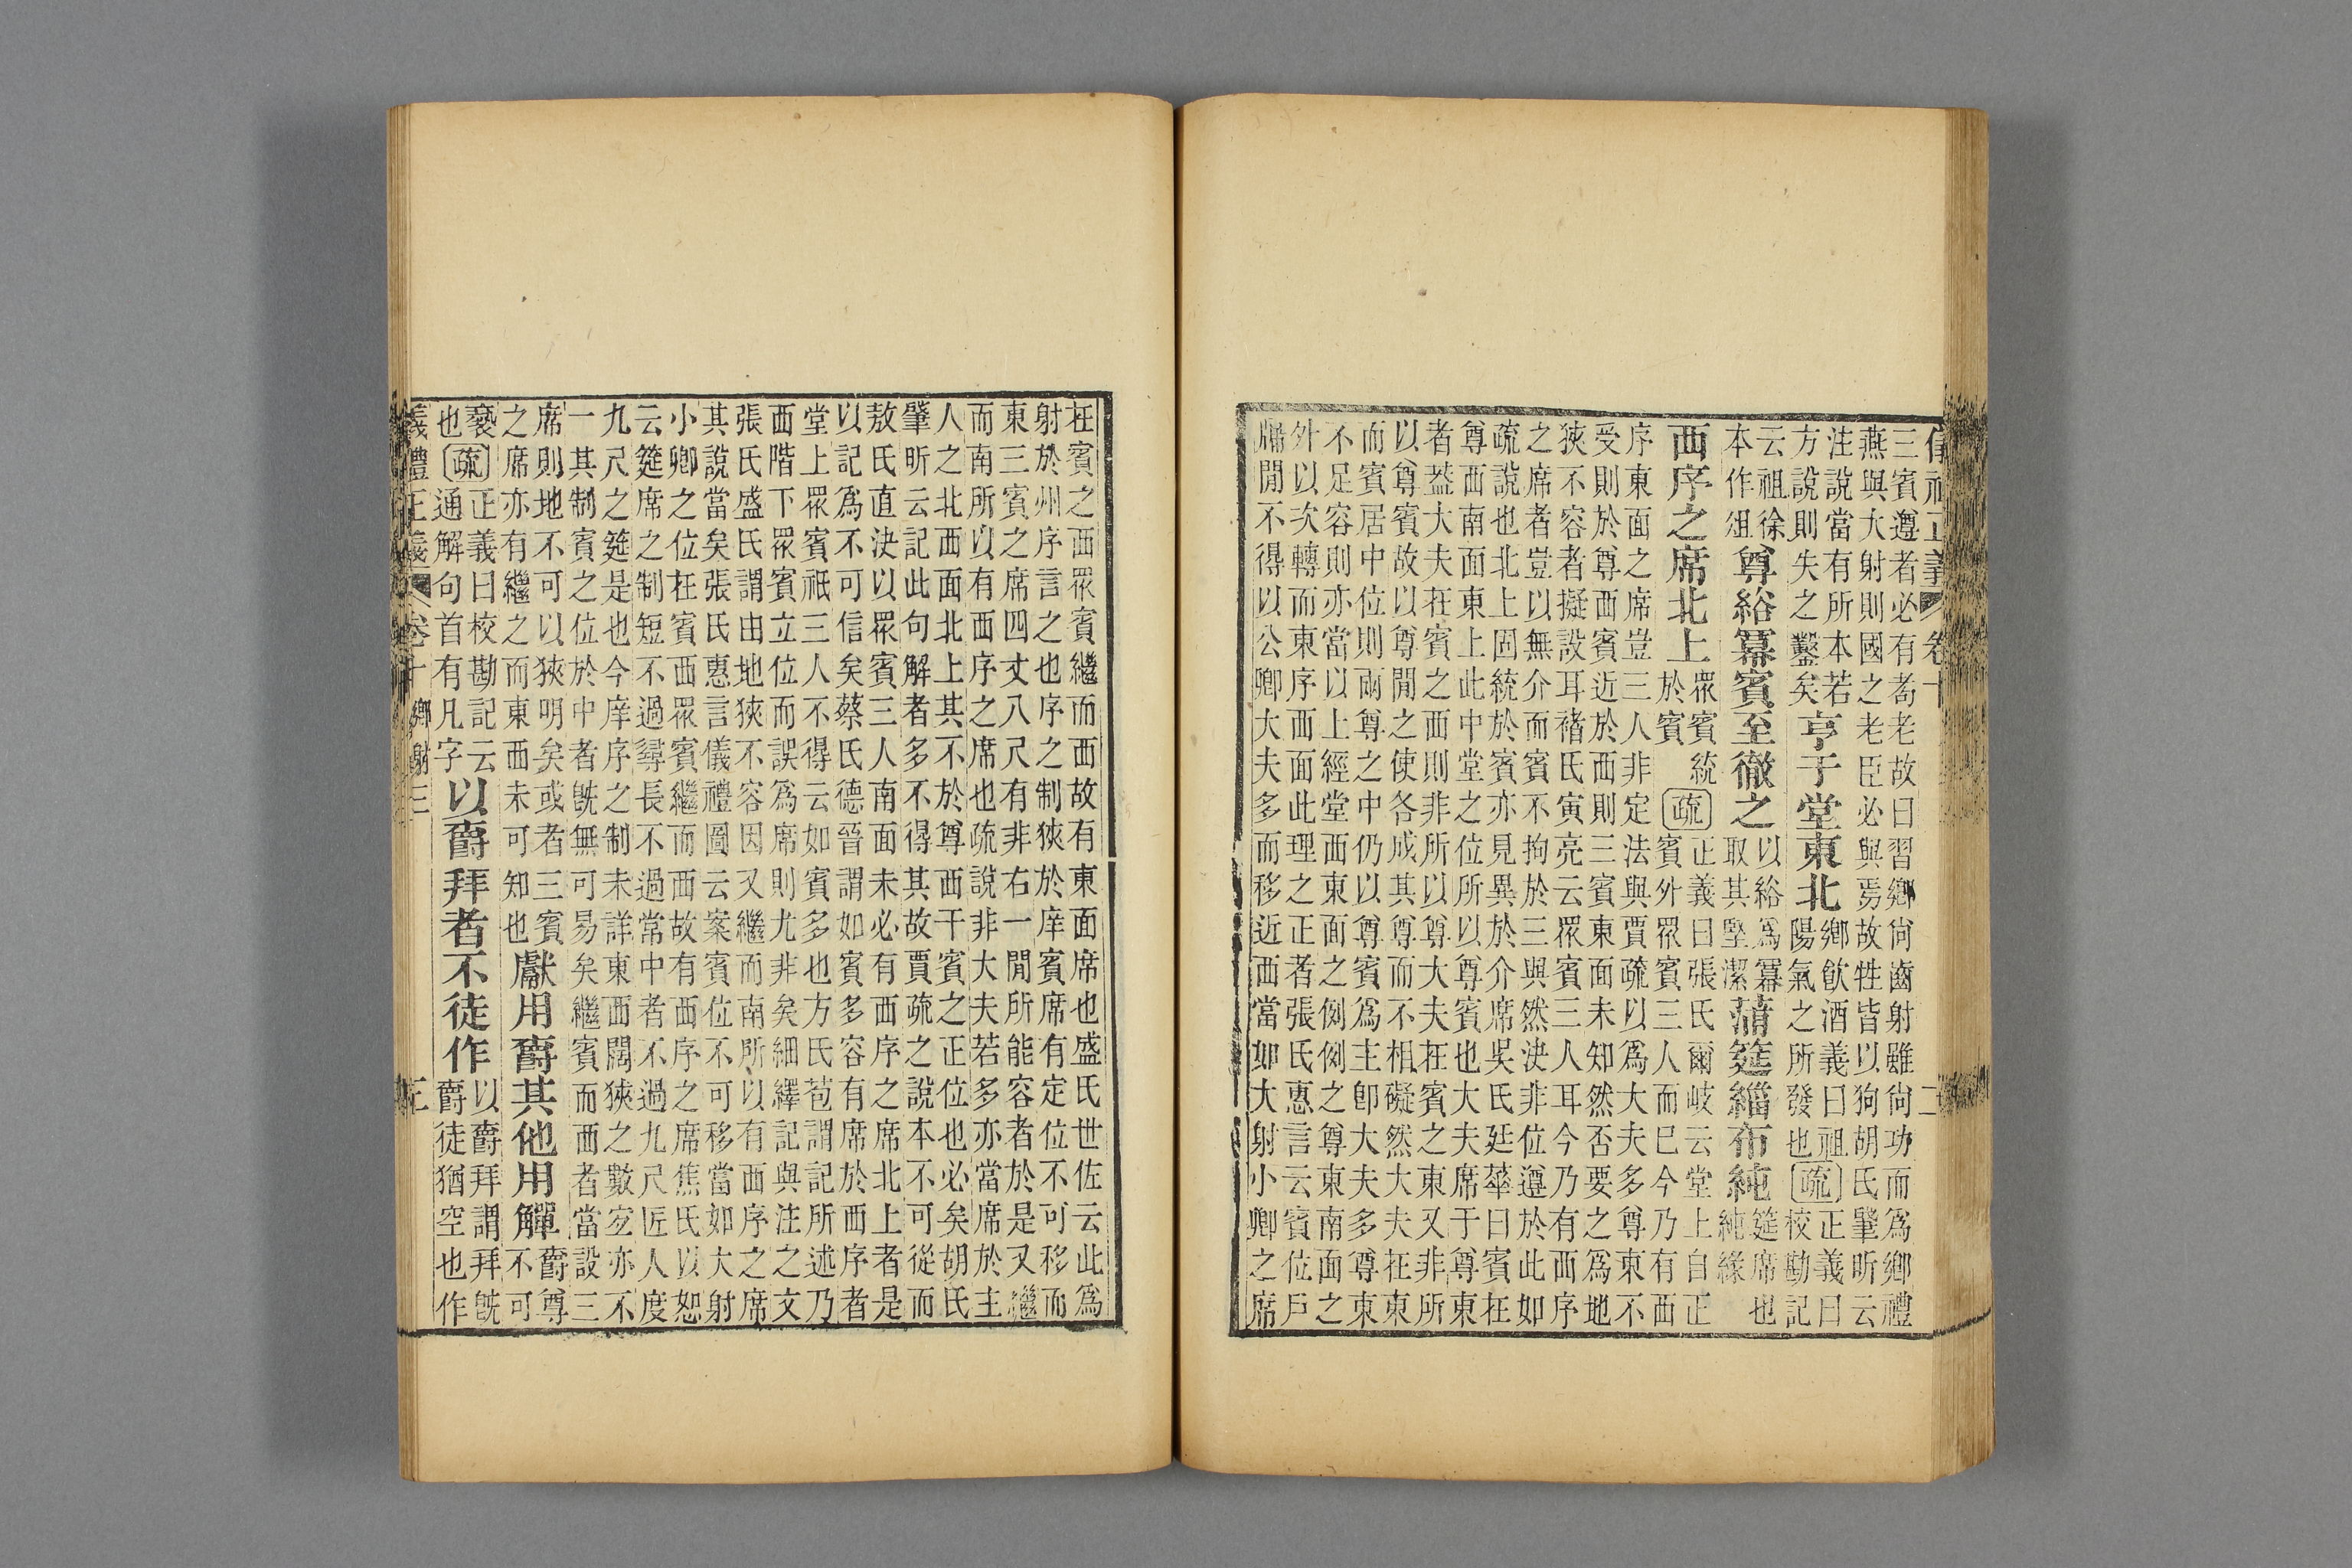 三賓遵者必有耆老故曰習鄉尚齒射雖尚功而為鄉禮
燕與大射則國之老臣必與焉故牲皆以狗胡氏肇昕云
注說當有所本若
方說則失之鑿矣
亨于堂東北
鄉飲酒義曰祖
陽氣之所發也
疏
正義曰
校勘記
云祖徐
本作俎
尊綌冪賓至徹之
以綌為冪
取其堅潔
蒲筵緇布純
筵席也
純緣
西序之席北上
眾賓統
於賓
疏
正義曰張氏爾岐云堂上自正
賓外眾賓三人而已今乃有西
序東面之席豈三人非定法與賈疏以為大夫多尊東不
受則於尊西賓近於西則三賓東面未知然否要之為地
狹不容者擬設耳褚氏寅亮云眾賓三人耳今乃有西序
之席者豈以無介而賓不拘於三與然決非位遵於此如
疏說也北上固統於賓亦見異於介席吳氏廷華曰賓在
尊西南面東上此中堂之位所以尊賓也大夫席于尊東
者葢大夫在賓之西則非所以尊大夫在賓之東又非所
以尊賓故以尊閒之使各成其尊而不相礙然大夫在東
而賓居中位則兩尊之中仍以尊賓為主卽大夫多尊東
不足容則亦當以上經堂西東面之例例之尊東南面之
外以次轉而東序西面此理之正者張氏惠言云賓位戶
牖閒不得以公卿大夫多而移近西當如大射小卿之席
在賓之西眾賓繼而西故有東面席也盛氏世佐云此為
射於州序言之也序之制狹於庠賓席有定位不可移而
東三賓之席四丈八尺有非右一閒所能容者於是又繼
而南所以有西序之席也疏說非大夫若多亦當席於主
人之北西面北上其不於尊西干賓之正位也必矣胡氏
肇昕云記此句解者多不得其故賈疏之說本不可從而
敖氏直決以眾賓三人南面未必有西序之席北上者是
以記為不可信矣蔡氏德晉謂如賓多容有席於西序者
堂上眾賓祇三人不得云如賓多也方氏苞謂記所述乃
西階下眾賓立位而誤為席則尤非矣細繹記與注之文
張氏盛氏謂由地狹不容因又繼而南所以有西序之席
其說當矣張氏惠言儀禮圖云案賓位不可移當如大射
小卿之位在賓西眾賓繼而西故有西序之席焦氏以恕
云筵席之制短不過尋長不過常中者不過九尺匠人度
九尺之筵是也今庠序之制未詳東西闊狹之數宐亦不
一其制賓之位於中者旣無可易矣繼賓而西者當設三
席則地不可以狹明矣或者三賓
之席亦有繼之而東西未可知也
獻用爵其他用觶
爵尊
不可
褻
也
疏
正義曰校勘記云
通解句首有凡字
以爵拜者不徒作
以爵拜謂拜旣
爵徒猶空也作
儀禮正義 卷十 鄉射三 三